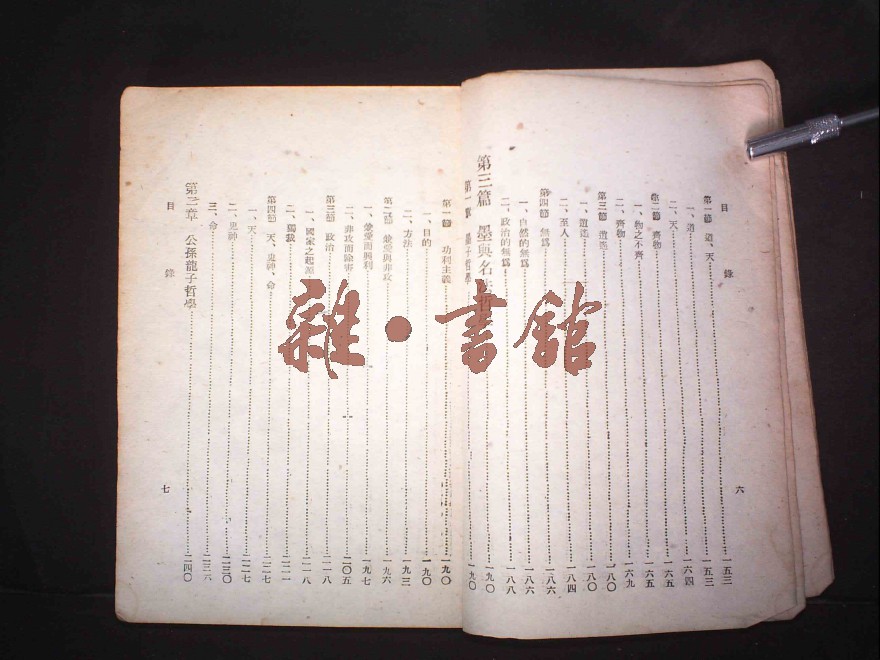 目錄
第一節 道、天……一五三
一、道……一五三
二、天……一六四
第二節 齊物……一六五
一、物之不齊……一六五
二、齊物……一六九
第三節 逍遙……一八〇
一、逍遙……一八〇
二、至人……一八四
第四節 無爲……一八六
一、自然的無爲……一八六
二、政治的無爲……一八八
第三篇 墨與名……一九〇
第一章 墨子哲學……一九〇
六
第一節 功利主義……一九〇
一、目的……一九〇
二、方法……一九三
第二節 兼愛與非攻……一九六
一、兼愛而興利……一九七
二、非攻而除害……二〇五
第三節 政治……二一八
一、國家之起源……二一八
二、獨裁……二二一
第四節 天、鬼神、命……二二七
一、天……二二七
二、鬼神……二三〇
三、命……二三六
第二章 公孫龍子哲學……二四〇
目錄
七
雜·書館